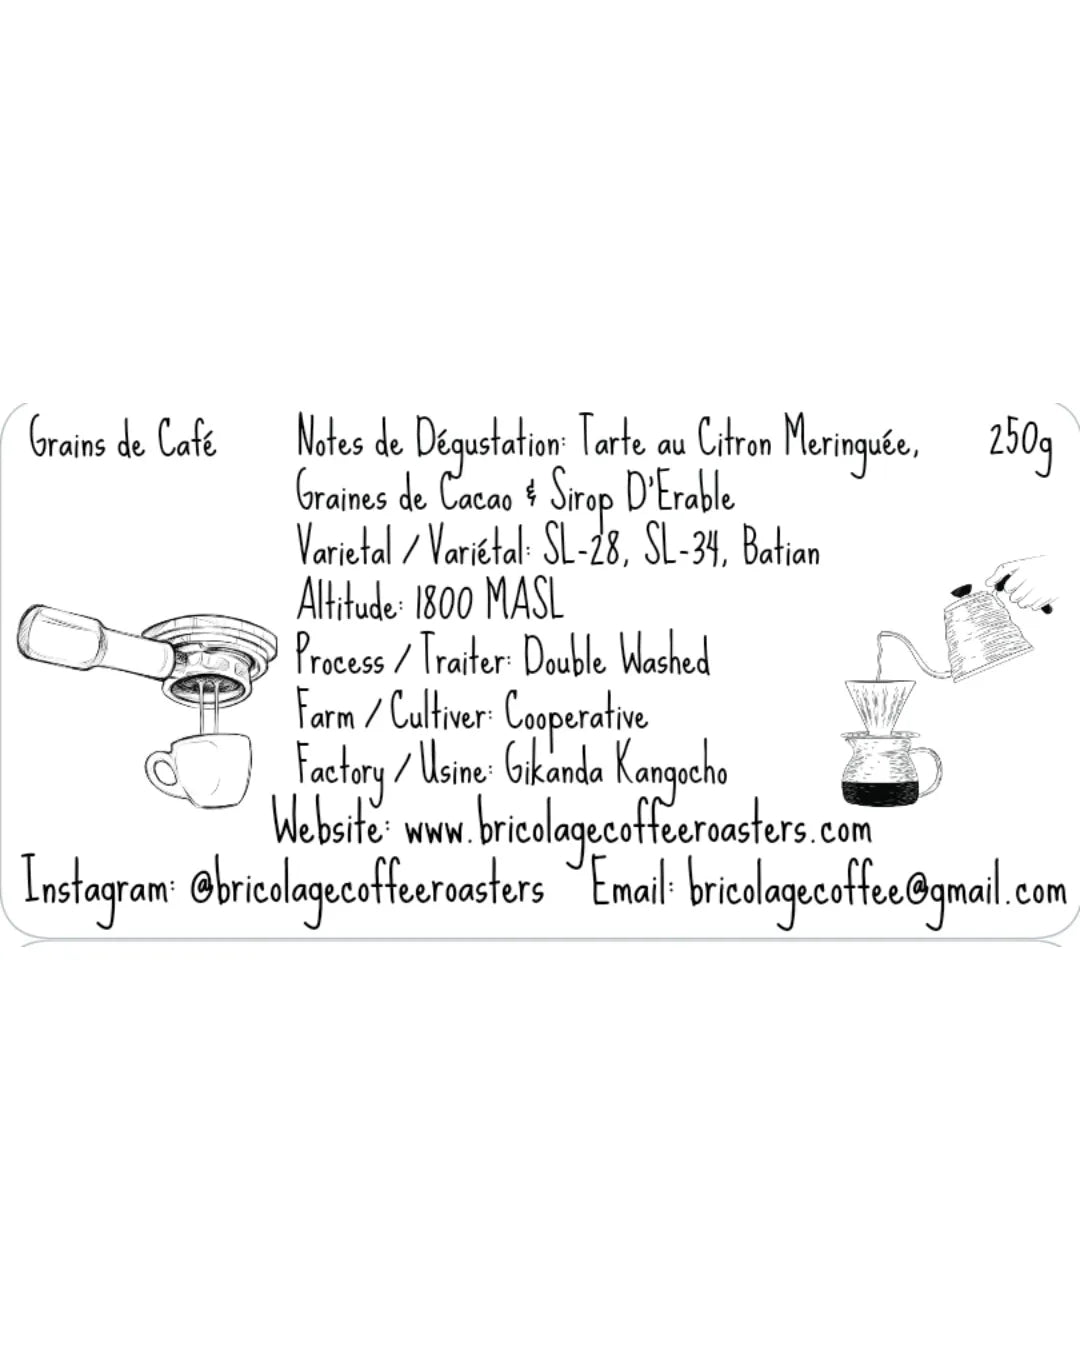 Grains de Café
Notes de Dégustation: Tarte au Citron Meringuée,
250g
Graines de Cacao & Sirop D'Erable
Varietal / Variétal: SL-28, SL-34, Batian
Altitude: 1800 MASL
Process / Traiter: Double Washed
Farm / Cultiver: Cooperative
Factory / Usine: Gikanda Kangocho
Website: www.bricolagecoffeeroasters.com
Instagram: @bricolagecoffeeroasters Email: bricolagecoffee@gmail.com